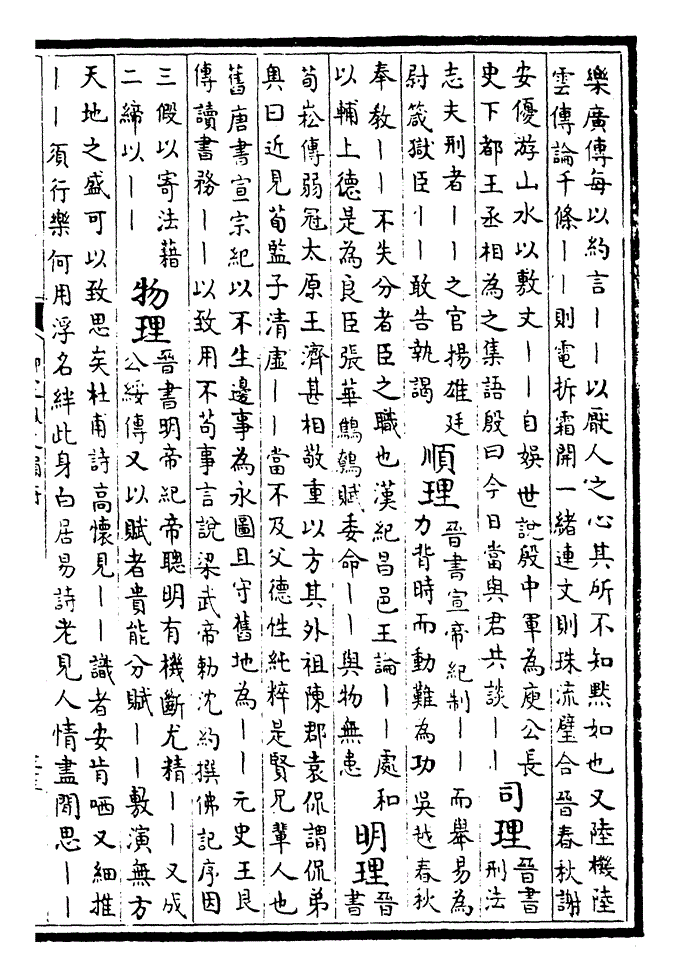 樂廣傳每以約言丨丨以厭人之心其所不知黙如也又陸機陸
雲傳論千條丨丨則電拆霜開一緒連文則珠流璧合晉春秋謝
安優游山水以敷文丨丨自娛世說殷中軍為庾公長
史下都王丞相為之集語殷曰今日當與君共談丨丨
司理
晉書
刑法
志夫刑者丨丨之官揚雄廷
尉箴獄臣丨丨敢告執謁
順理
晉書宣帝紀制丨丨而舉易為
力背時而動難為功吳越春秋
奉教丨丨不失分者臣之職也漢紀昌邑王論丨丨處和
以輔上德是為良臣張華鷦鷯賦委命丨丨與物無患
明理
晉
書
荀崧傳弱冠太原王濟甚相敬重以方其外祖陳郡袁侃謂侃弟
奧曰近見荀監子清虛丨丨當不及父德性純粹是賢兄輩人也
舊唐書宣宗紀以不生邊事為永圖且守舊地為丨丨元史王艮
傳讀書務丨丨以致用不苟事言說梁武帝勅沈約撰佛記序因
三假以寄法藉
二締以丨丨
物理
晉書明帝紀帝聰明有機斷尤精丨丨又成
公綏傳又以賦者貴能分賦丨丨敷演無方
天地之盛可以致思矣杜甫詩高懷見丨丨識者安肯哂又細推
丨丨須行樂何用浮名絆此身白居易詩老見人情盡閒思丨丨